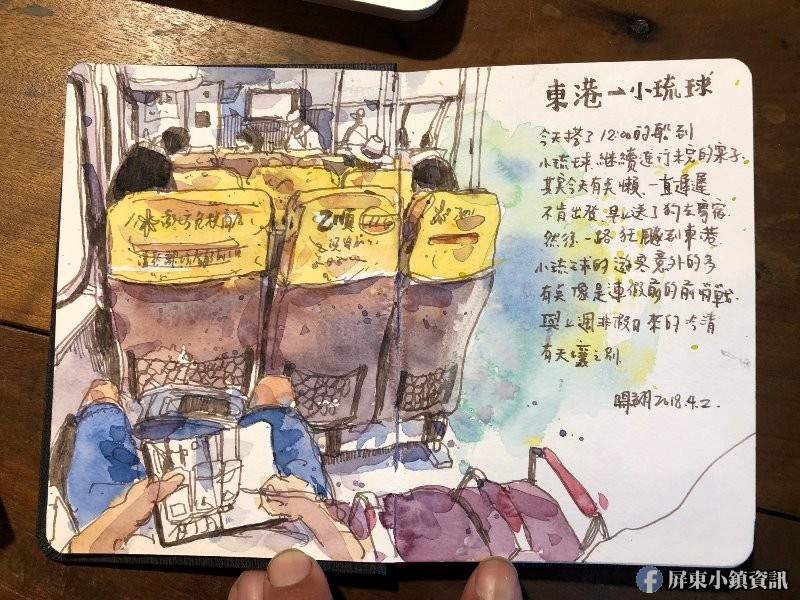 東港→小琉球
今天搭了12:00的船到
小琉球.繼續進行未完的案子.
其實今天有点懶.一直遲遲
不肯出發.早上送了狗去寄宿.
然後一路狂飆到東港.
小琉球的遊客意外的多
有点像是連假前的前哨戰.
與上週非假日來的冷清
有天壤之別.
2018.4.2.
屏東小鎮資訊